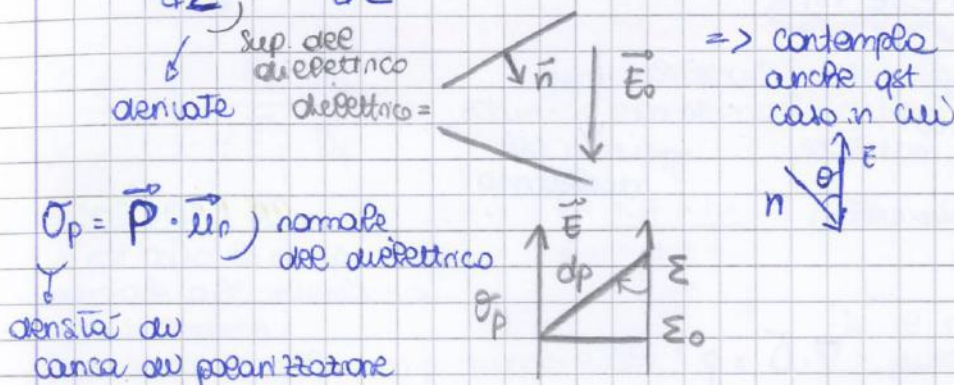 sup. del
dielettrico
derivate
dielettrico =
n
E₀
=> contempla
anche qst
caso in cui
E
θ
n
σp = P · μn ) normale
del dielettrico
densità di
carica di polarizzazione
E
dp
σp
Σ
Σ₀